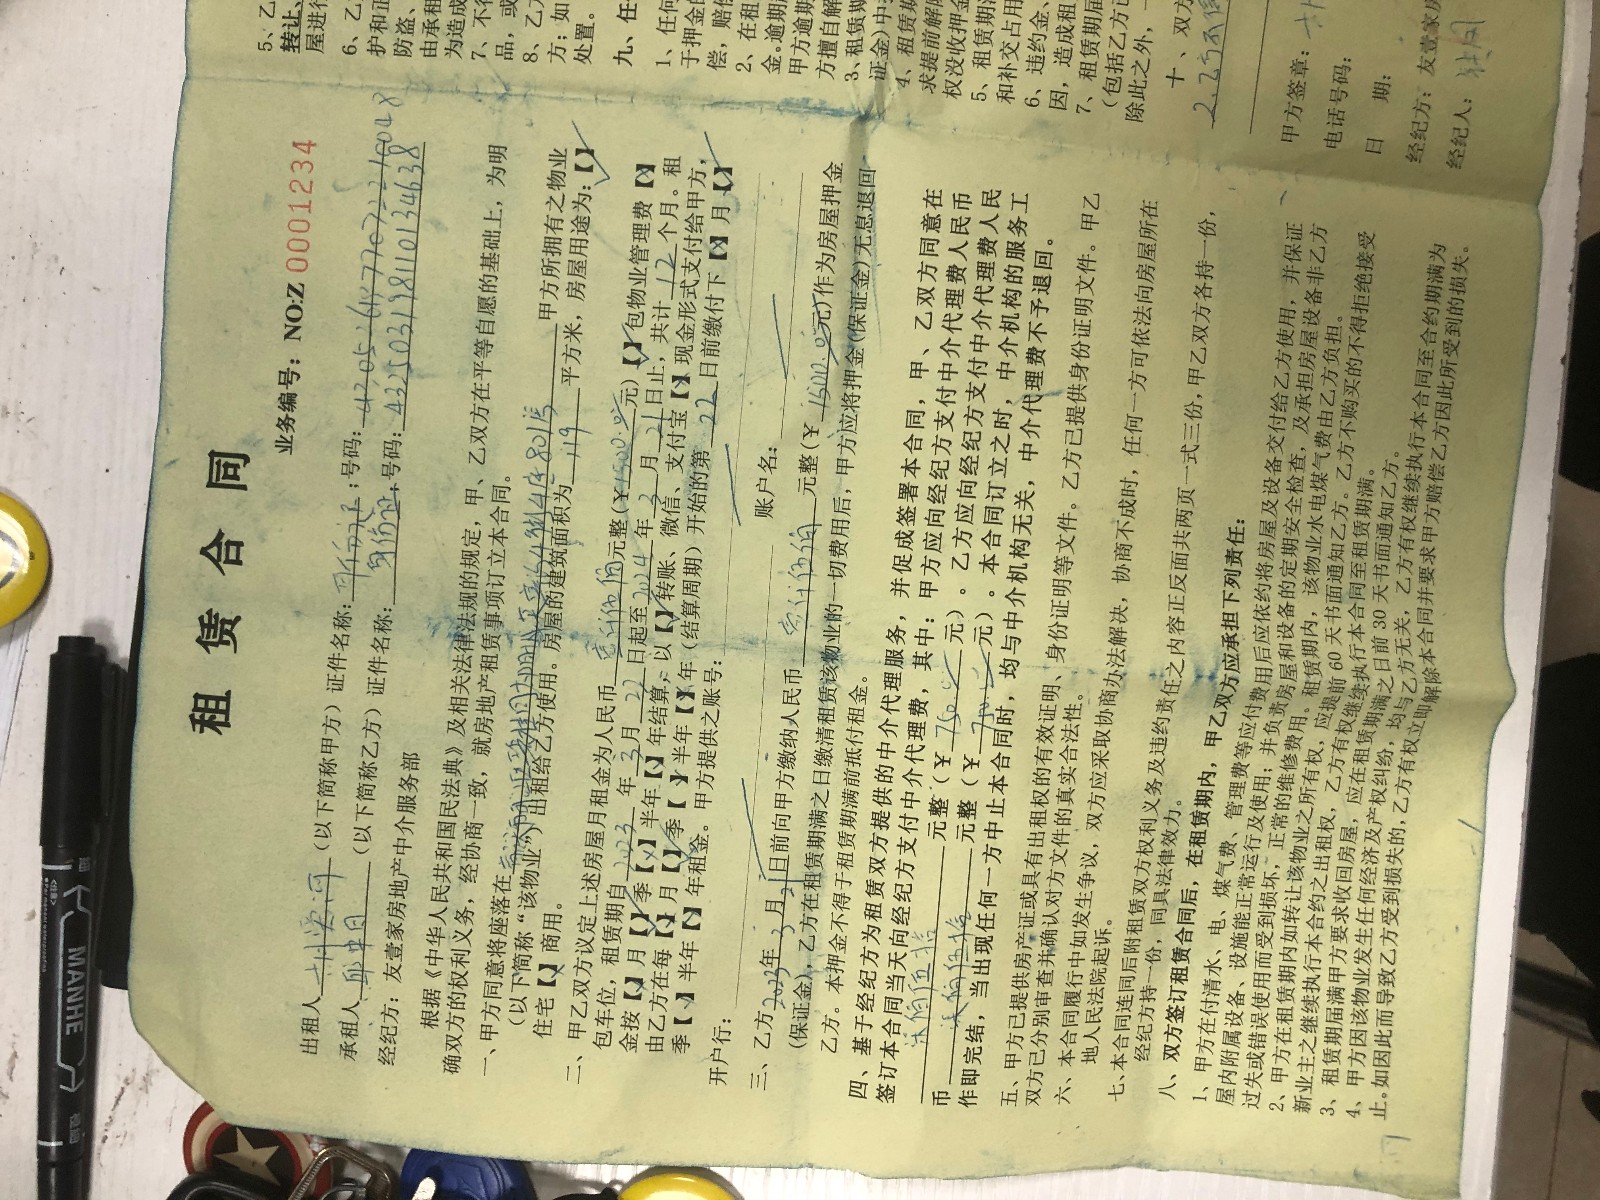 租赁合同
业务编号：NO:Z 0001234
出租人 （以下简称甲方）证件名称： ；号码：
承租人 （以下简称乙方）证件名称：身份证；号码：432503198110134638
经纪方：友壹家房地产中介服务部
根据《中华人民共和国民法典》及相关法律法规的规定，甲、乙双方在平等自愿的基础上，为明
确双方的权利义务，经协商一致，就房地产租赁事项订立本合同。
一、甲方同意将座落在 甲方所拥有之物业
（以下简称“该物业”）出租给乙方使用。房屋的建筑面积为 119 平方米，房屋用途为：【】
住宅【】商用。
二、甲乙双方议定上述房屋月租金为人民币 壹仟伍佰 元整(￥1500.00元)【】包物业管理费【】
包车位，租赁期自 2023 年 3 月 22 日起至 2024 年 3 月 21 日止，共计 12 个月。租
金按【】月【】季【】半年【】年结算，以【】转账、微信、支付宝【】现金形式支付给甲方，
由乙方在每【】月【】季【】半年【】年（结算周期）开始的第 22 日前缴付下【】月【】
季【】半年【】年租金。甲方提供之账号：
开户行： 账户名：
三、乙方2023年 3 月 21 日前向甲方缴纳人民币 壹仟伍佰 元整(￥ 1500.00元)作为房屋押金
(保证金)，乙方在租赁期满之日缴清租赁该物业的一切费用后，甲方应将押金(保证金)无息退回
乙方。本押金不得于租赁期满前抵付租金。
四、基于经纪方为租赁双方提供的中介代理服务，并促成签署本合同，甲、乙双方同意在
签订本合同当天向经纪方支付中介代理费，其中：甲方应向经纪方支付中介代理费人民币
柒佰伍拾 元整（￥ 750 元）。乙方应向经纪方支付中介代理费人民
币 柒佰伍拾 元整（￥ 750 元）。本合同订立之时，中介机构的服务工
作即完结，当出现任何一方中止本合同时，均与中介机构无关，中介代理费不予退回。
五、甲方已提供房产证或具有出租权的有效证明、身份证明等文件。乙方已提供身份证明文件。甲乙
双方已分别审查并确认对方文件的真实合法性。
六、本合同履行中如发生争议，双方应采取协商办法解决，协商不成时，任何一方可依法向房屋所在
地人民法院起诉。
七、本合同连同后附租赁双方权利义务及违约责任之内容正反面共两页一式三份，甲乙双方各持一份，
经纪方持一份，同具法律效力。
八、双方签订租赁合同后，在租赁期内，甲乙双方应承担下列责任：
1、甲方在付清水、电、煤气费、管理费等应付费用后应依约将房屋及设备交付给乙方使用，并保证
屋内附属设备、设施能正常运行及使用；并负责房屋和设备的定期安全检查，及承担房屋设备非乙方
过失或错误使用而受到损坏，正常的维修费用。租赁期内，该物业水电煤气费由乙方负担。
2、甲方在租赁期内如转让该物业之所有权，应提前 60 天书面通知乙方。乙方不购买的不得拒绝接受
新业主之继续执行本合约之出租权，乙方有权继续执行本合同至租赁期满。
3、租赁期届满甲方要求收回房屋，应在租赁期满之日前 30 天书面通知乙方。
4、甲方因该物业发生任何经济及产权纠纷，均与乙方无关，乙方有权继续执行本合同至合约期满为
止。如因此而导致乙方受到损失的，乙方有权立即解除本合同并要求甲方赔偿乙方因此所受到的损失。
5、乙
转让、
屋进行
6、乙
护和正
防盗、
由承租
为造成
7、不得
品，或
8、乙方
方；如
处置。
九、任
1、任何
于押金的
偿，赔偿
2、在租
金。逾期
甲方逾期
方擅自解
3、租赁期
证金)中扣
4、租赁期
求提前解除
权没收押金
5、租赁期
和补交占用
6、违约金、
因，造成租
7、租赁期届
（包括乙方已
除此之外，
十、双方
甲方签章：
电话号码：
日 期：
经纪方：友壹家房
经纪人：
MANHE